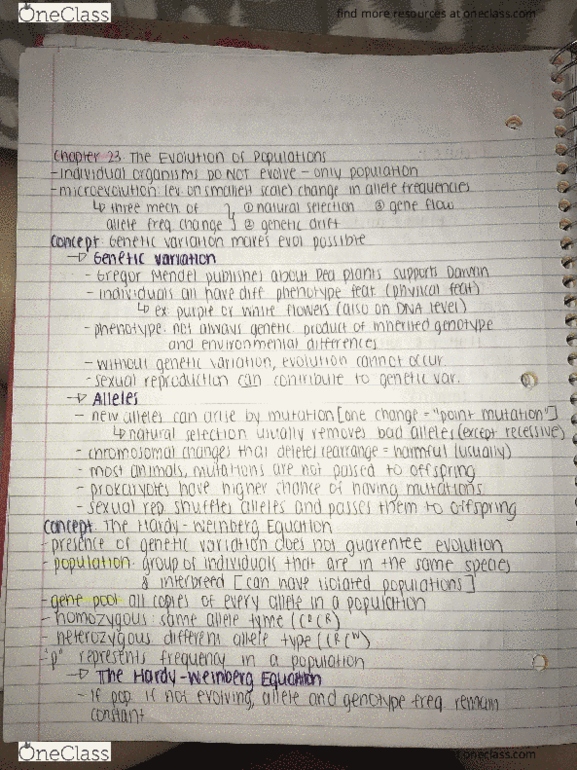 OneClass
find more resources at oneclass.com
Chapter 23 The Evolution of Populations
-individual organisms DO NOT evolve - only population
-microevolution: (ev on smallest scale) change in allele frequencies
↳ three mech of } ① natural selection ③ gene flow
allele freq change } ② genetic drift
Concept: Genetic variation makes evol possible
→ Genetic variation
- Gregor Mendel publishes about pea plants supports Darwin
- individuals all have diff phenotype feat (physical feat)
↳ ex: purple or white flowers (also on DNA level)
- phenotype: not always genetic product of inherited genotype
and environmental differences
- without genetic variation, evolution cannot occur
- sexual reproduction can contribute to genetic var.
→ Alleles
- new alleles can arise by mutation [one change = "point mutation"]
↳ natural selection usually removes bad alleles (except recessive)
- chromosomal changes that delete/rearrange = harmful (usually)
- most animals, mutations are not passed to offspring
- prokaryotes have higher chance of having mutations
- sexual rep shuffles alleles and passes them to offspring
Concept: The Hardy-Weinberg Equation
-presence of genetic variation does not guarentee evolution
-population: group of individuals that are in the same species
& interbreed [can have isolated populations]
-gene pool: all copies of every allele in a population
-homozygous: same allele type (CRCR)
-heterozygous: different allele type (CRCW)
-"p" represents frequency in a population
→ The Hardy-Weinberg Equation
- if pop. is not evolving, allele and genotype freq. remain
constant
OneClass
find more resources at oneclass.com